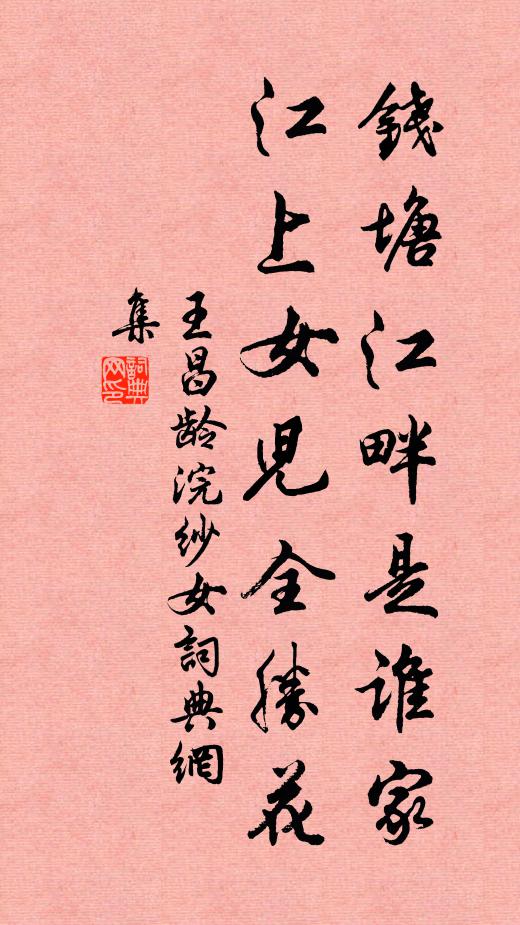 錢塘江畔是誰家
江上女兒全勝花
王昌龄浣紗女詞典網
集
詞典
网印